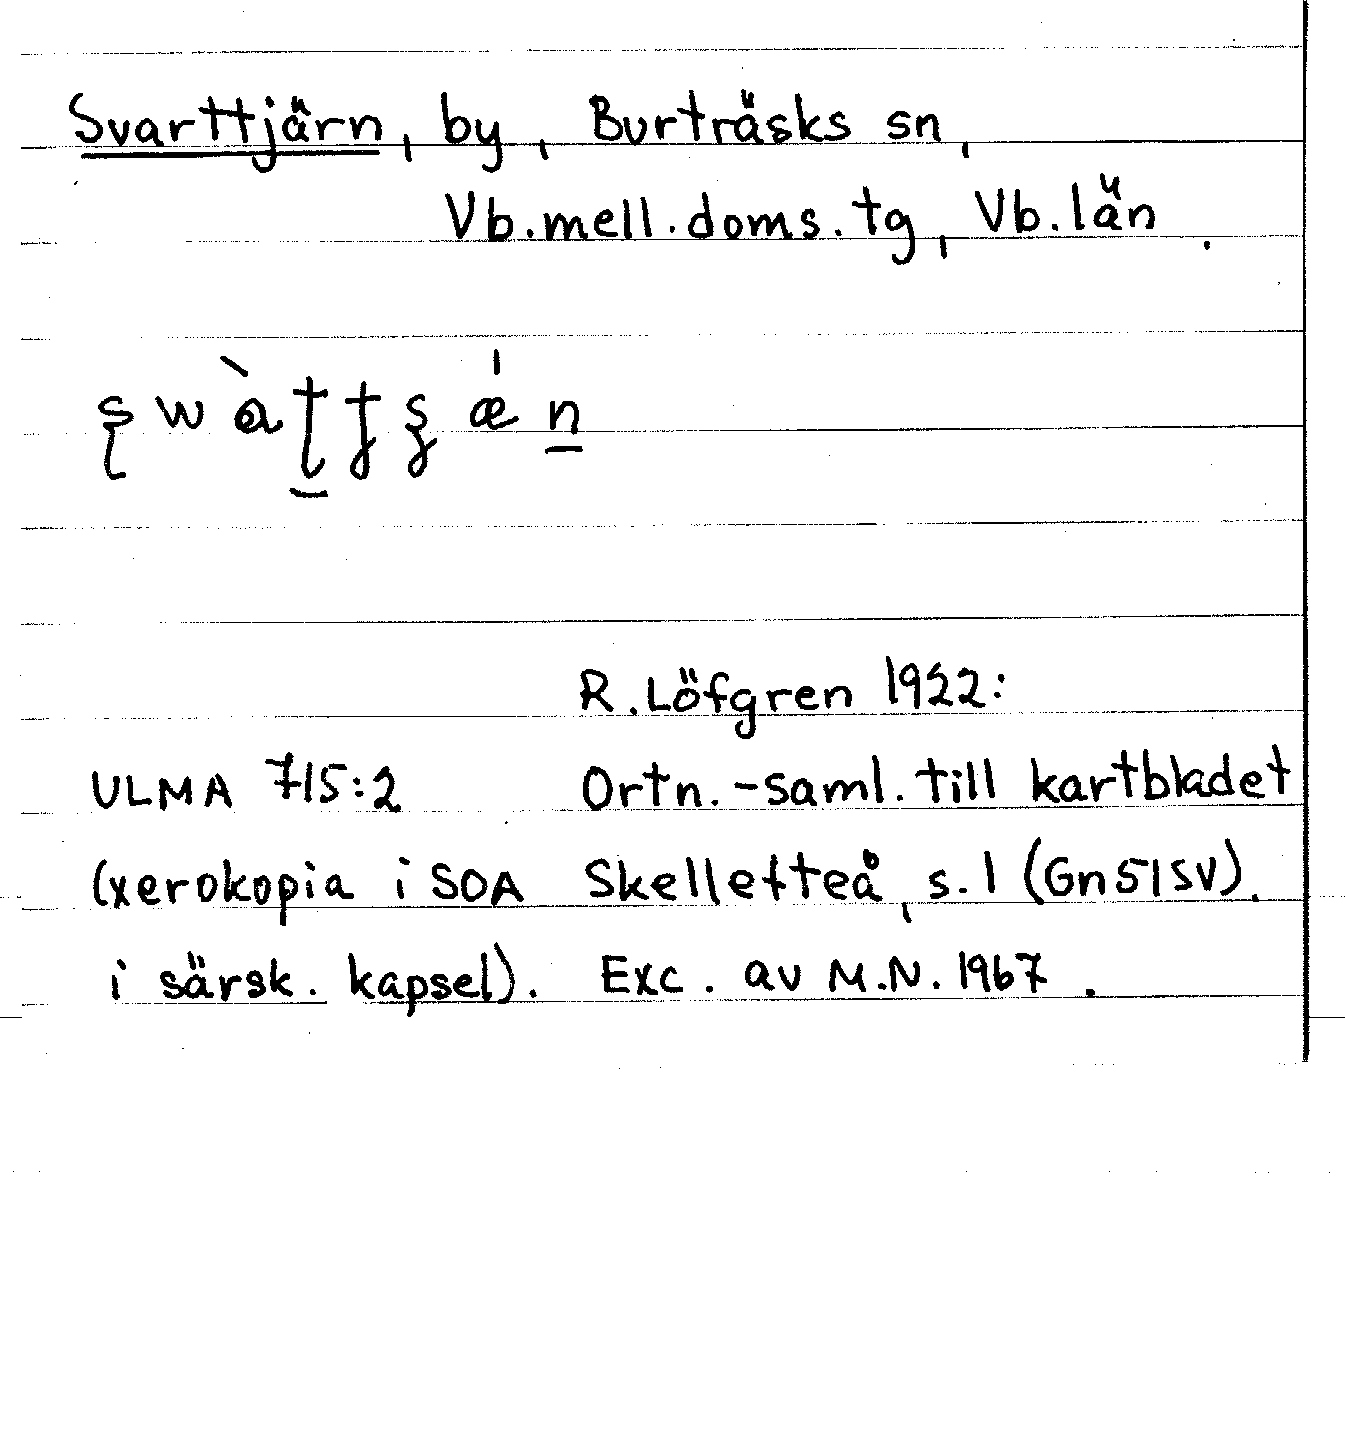 Svarttjärn, by, Burträsks sn,
Vb.mell.doms.tg, Vb.län.
R.Löfgren 1922:
ULMA 715:2 Ortn.-saml.till kartbladet
(xerokopia i SOA Skellefteå, s.1 (Gn51SV).
i särsk. kapsel). Exc. av M.N. 1967.